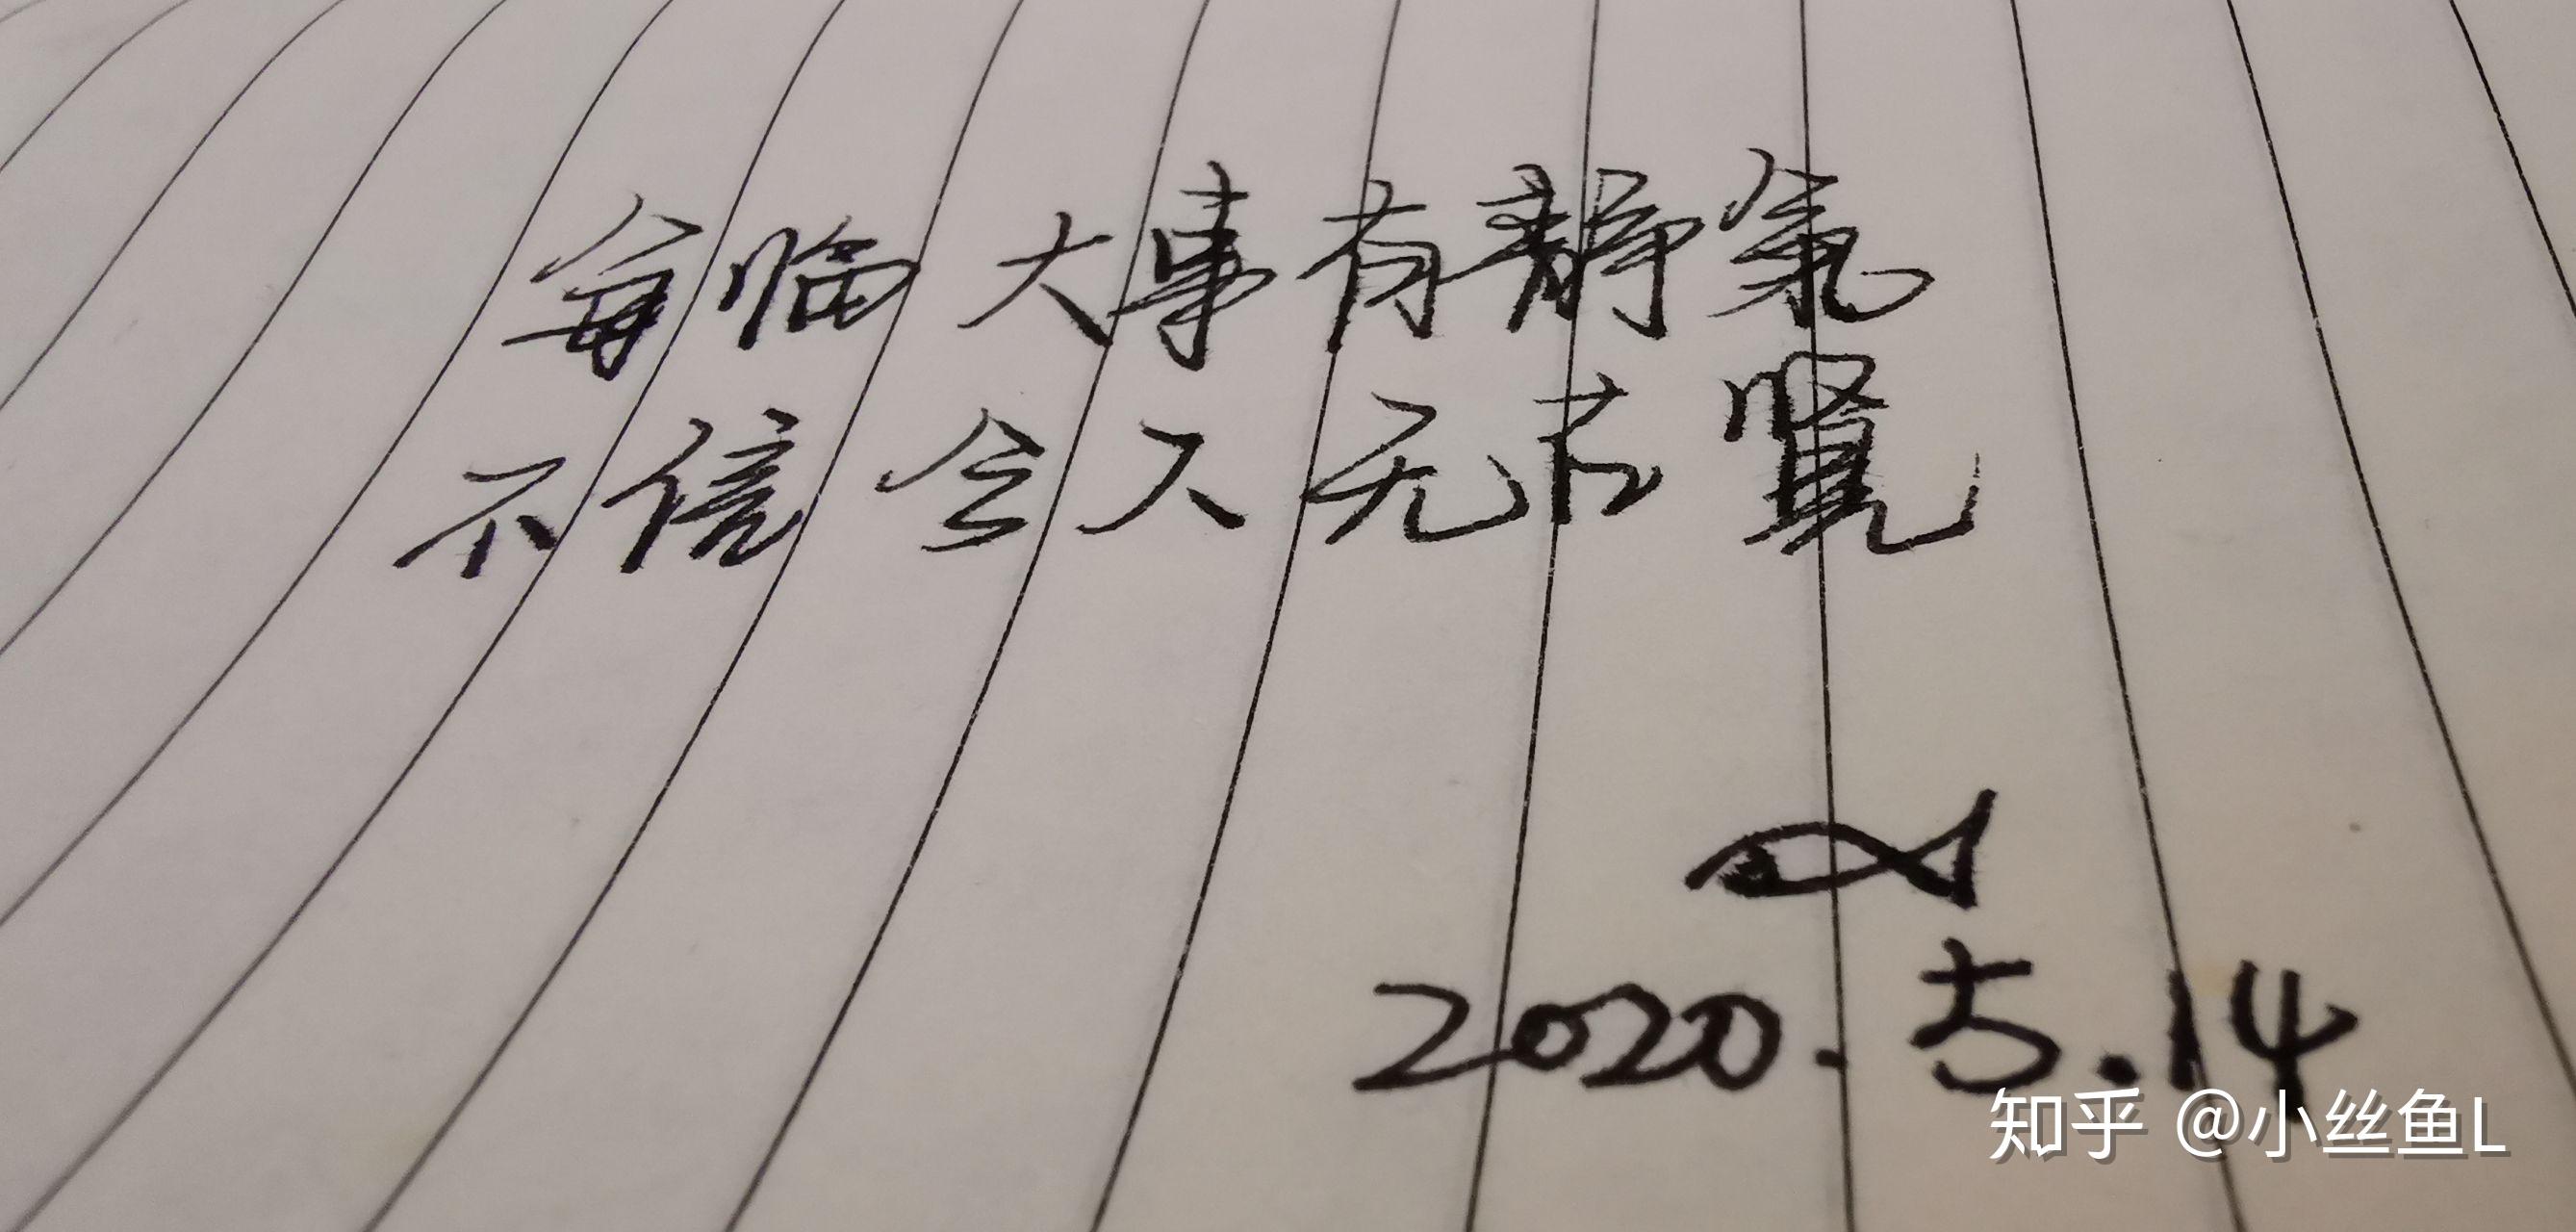 每临大事有静氣
不信今人无古賢
2020.5.14
知乎 @小丝鱼L